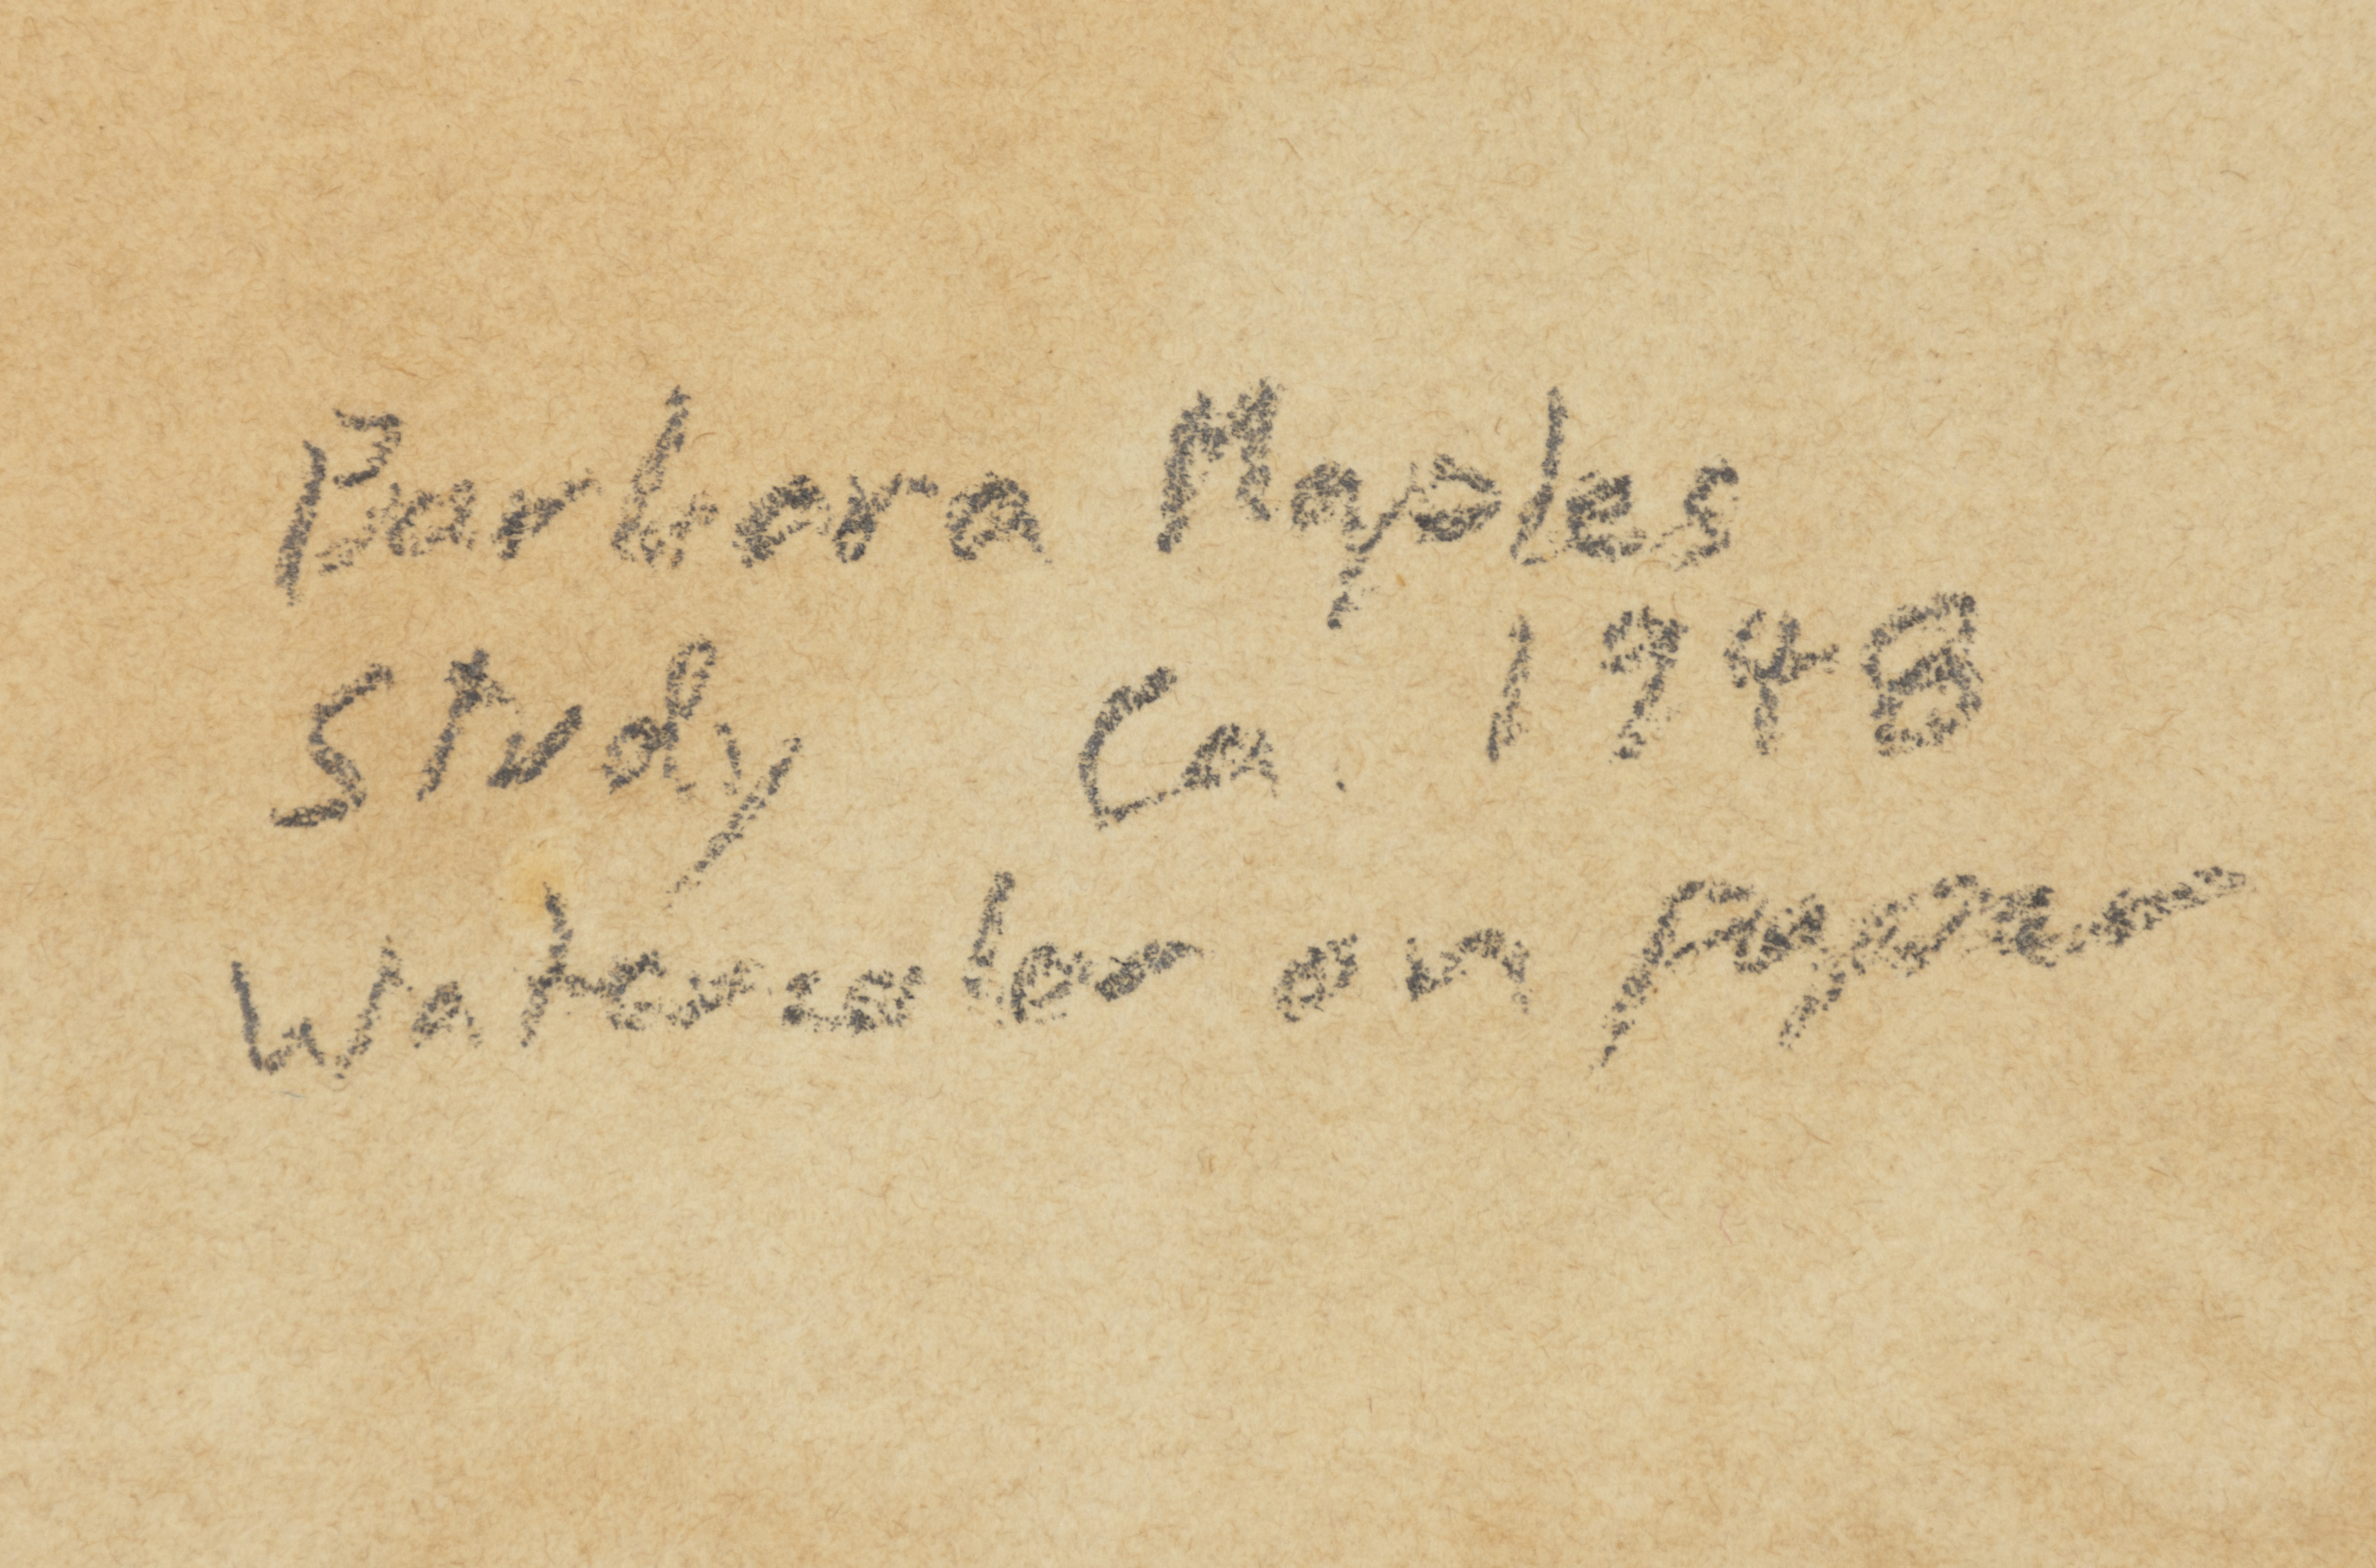 Barbara Maples
Study Ca. 1948
Watercolor on paper